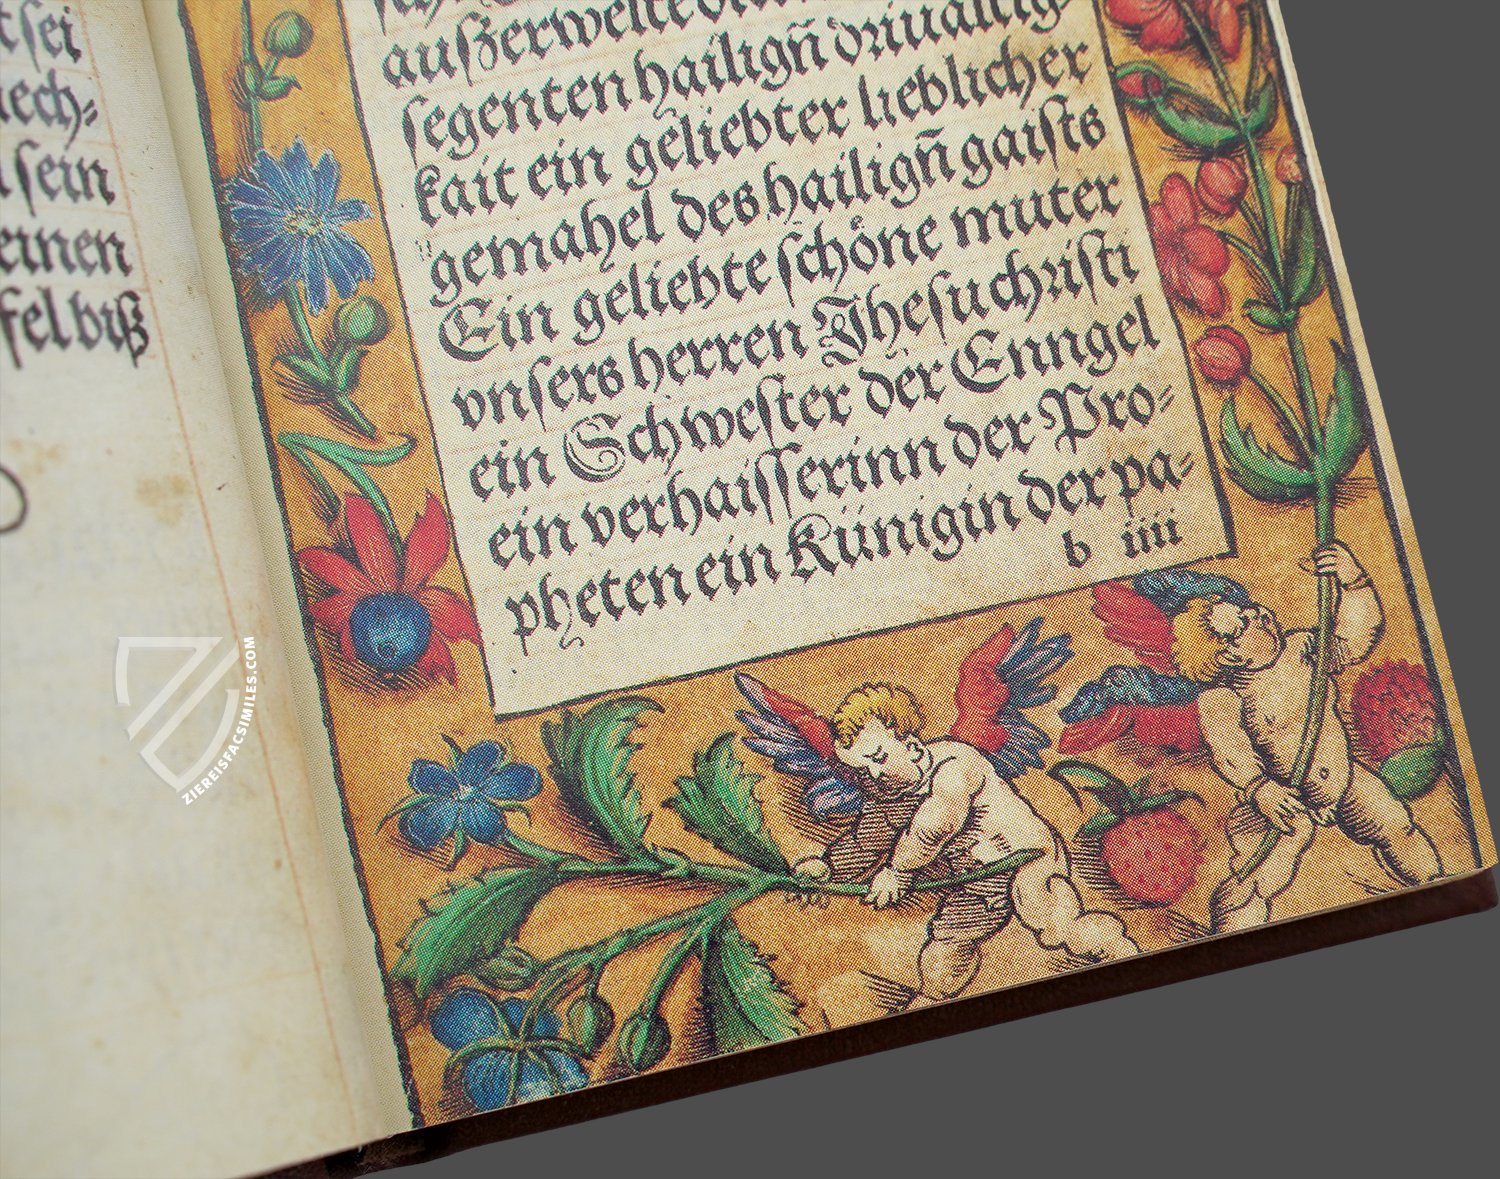 sei
ech-
sein
einen
fel biß
auszerwelte
segenten hailigñ driualtig-
kait ein geliebter lieblicher
gemahel des hailigñ gaists
Ein geliebte schöne muter
vnsers herren Jhesu christi
ein Schwester der Enngel
ein verhaisserinn der Pro-
pheten ein Künigin der pa-
b iiii
ZIEREISFACSIMILES.COM